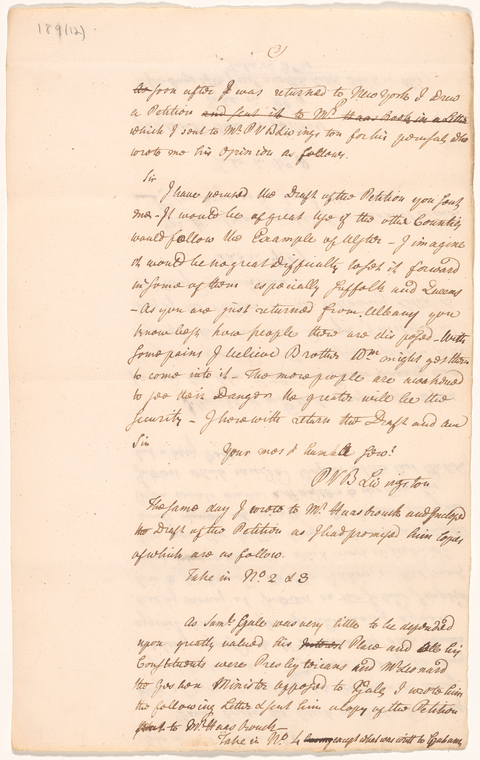 189(12)
As soon after I was returned to New York I Drew
a Petition and sent it to Mr Haasbrouk in a Letter
which I sent to Mr P V B Livingston for his perusal, who
wrote me his Opinion as follows.
Sir
I have perused the Draft of the Petition you sent
me - It would be of great Use if the other Counties
would follow the Example of Ulster - I imagine
it would be no great Difficulty to set it forward
in some of them especially Suffolk and Queens
- As you are just returned from Albany you
know best how people there are disposed - With
some pains I believe Brother Wm might get them
to come into it - The more people are awakened
to see their Danger the greater will be the
Security - I herewith return the Draft and am
Sir
Your most humble Servt
P V B Livingston
The same day I wrote to Mr Haasbrouck and Inclosed
the Draft of the Petition as I had promised him Copies
of which are as follow.
Take in No 2 & 3
As Saml Gale was very little to be depended
upon greatly valued his Interest Place and all his
Constituents were Presbyterians and
the German Minister opposed to Gale I wrote him
the following Letter & sent him a Copy of the Petition
sent to Mr Haasbrouck
Take in No 4 except what was writ to Graham